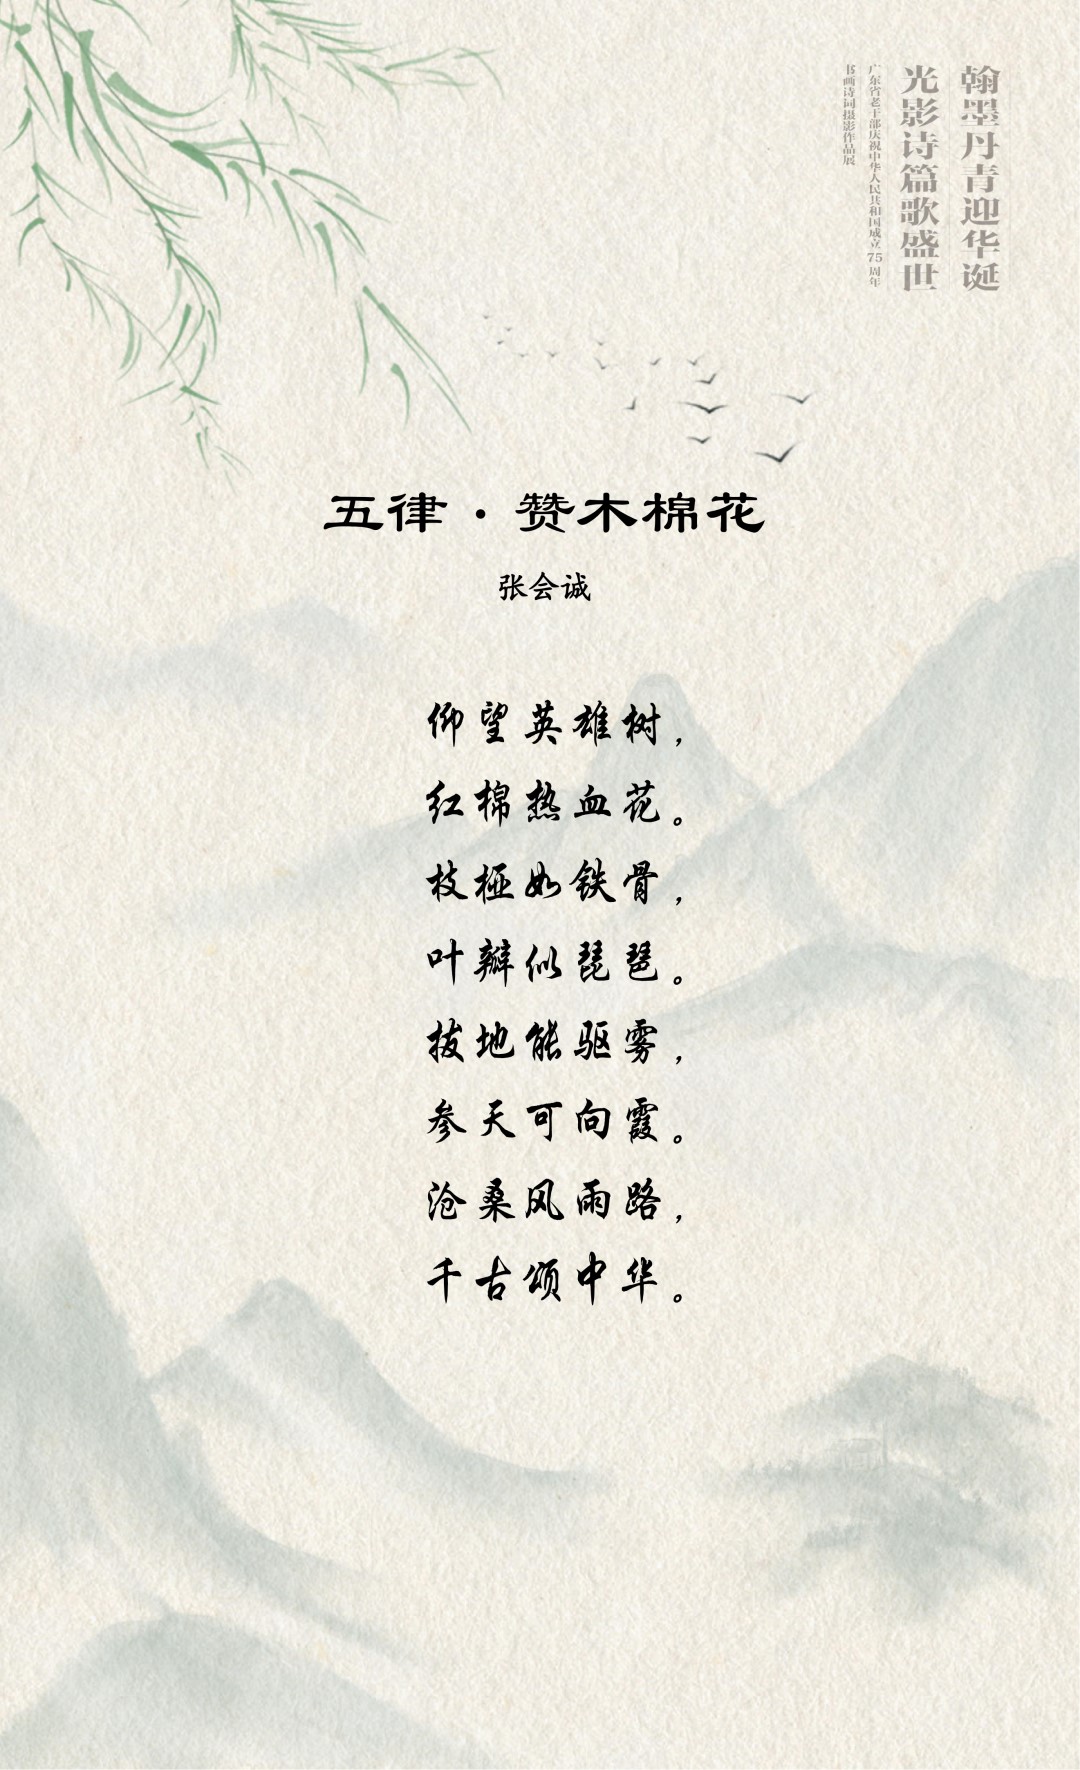 翰墨丹青迎华诞
光影诗篇歌盛世
广东省老干部庆祝中华人民共和国成立75周年
书画诗词摄影作品展
五律·赞木棉花
张会诚
仰望英雄树，
红棉热血花。
枝桠如铁骨，
叶瓣似琵琶。
拔地能驱雾，
参天可向霞。
沧桑风雨路，
千古颂中华。